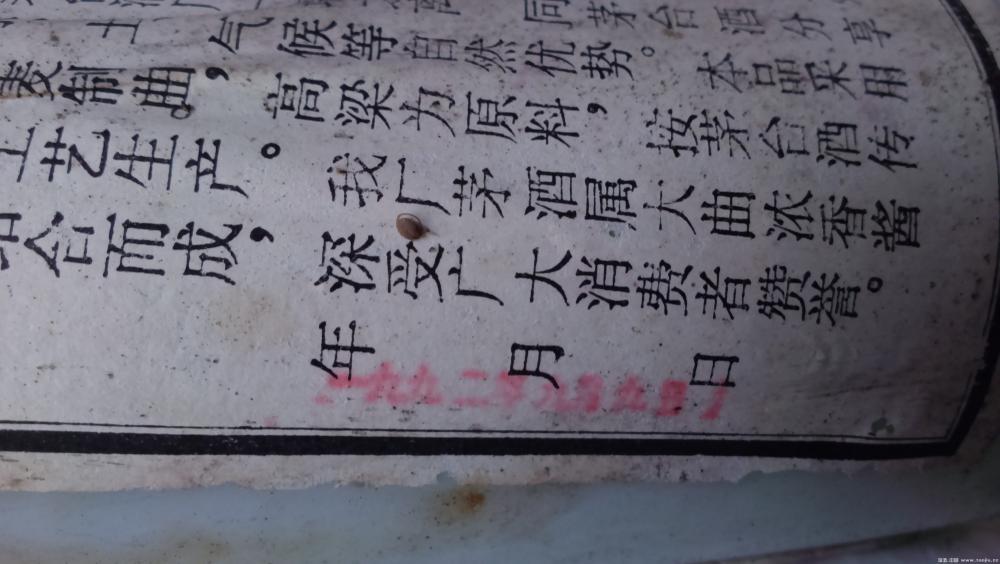 同茅台酒分享
土 气候等自然优势。本品采用
麦制曲，高粱为原料，按茅台酒传
工艺生产。我厂茅酒属大曲浓香酱
合而成，深受广大消费者赞誉。
年 月 日
九二年